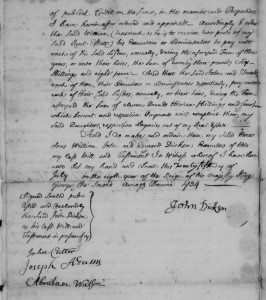 of publick Credit on the same, in the manner and Proportions
I have herein after ordered and appointed. Accordingly I order
the said William, (inasmuch as he is to receive two parts of my
said Real Estate) his Executors or Administrators to pay unto
each of his said sisters, annually, during the aforesaid Term of three
years, or unto their heirs, the sum of twenty three pounds, six
shillings and eight pence. And that the said John and Edward
each of them, their Executors or Administrators respectively, pay unto
each of their said sisters, annually, or their heirs, during the Term
aforesaid the sum of eleven Pounds thirteen shillings and four pence
which several and respective Payments until compleat them, my
said Daughters, respective Proportions out of my Real Estate.
And I do make and ordain them, my said three
sons William John and Edward Dicken Executors of this
my last Will and Testament. In Witness whereof I have here
unto set my hand and Seal this Twenty fifth day of
July in the eighth year of the Reign of his majesty King
George the Second Annoq Domini 1734
Signed Sealed publi
shed and declared by
the said John Dicken
as his last Will and
Testament in presence of
John Dicken
John Cutter
Joseph Adams
Abraham Watson